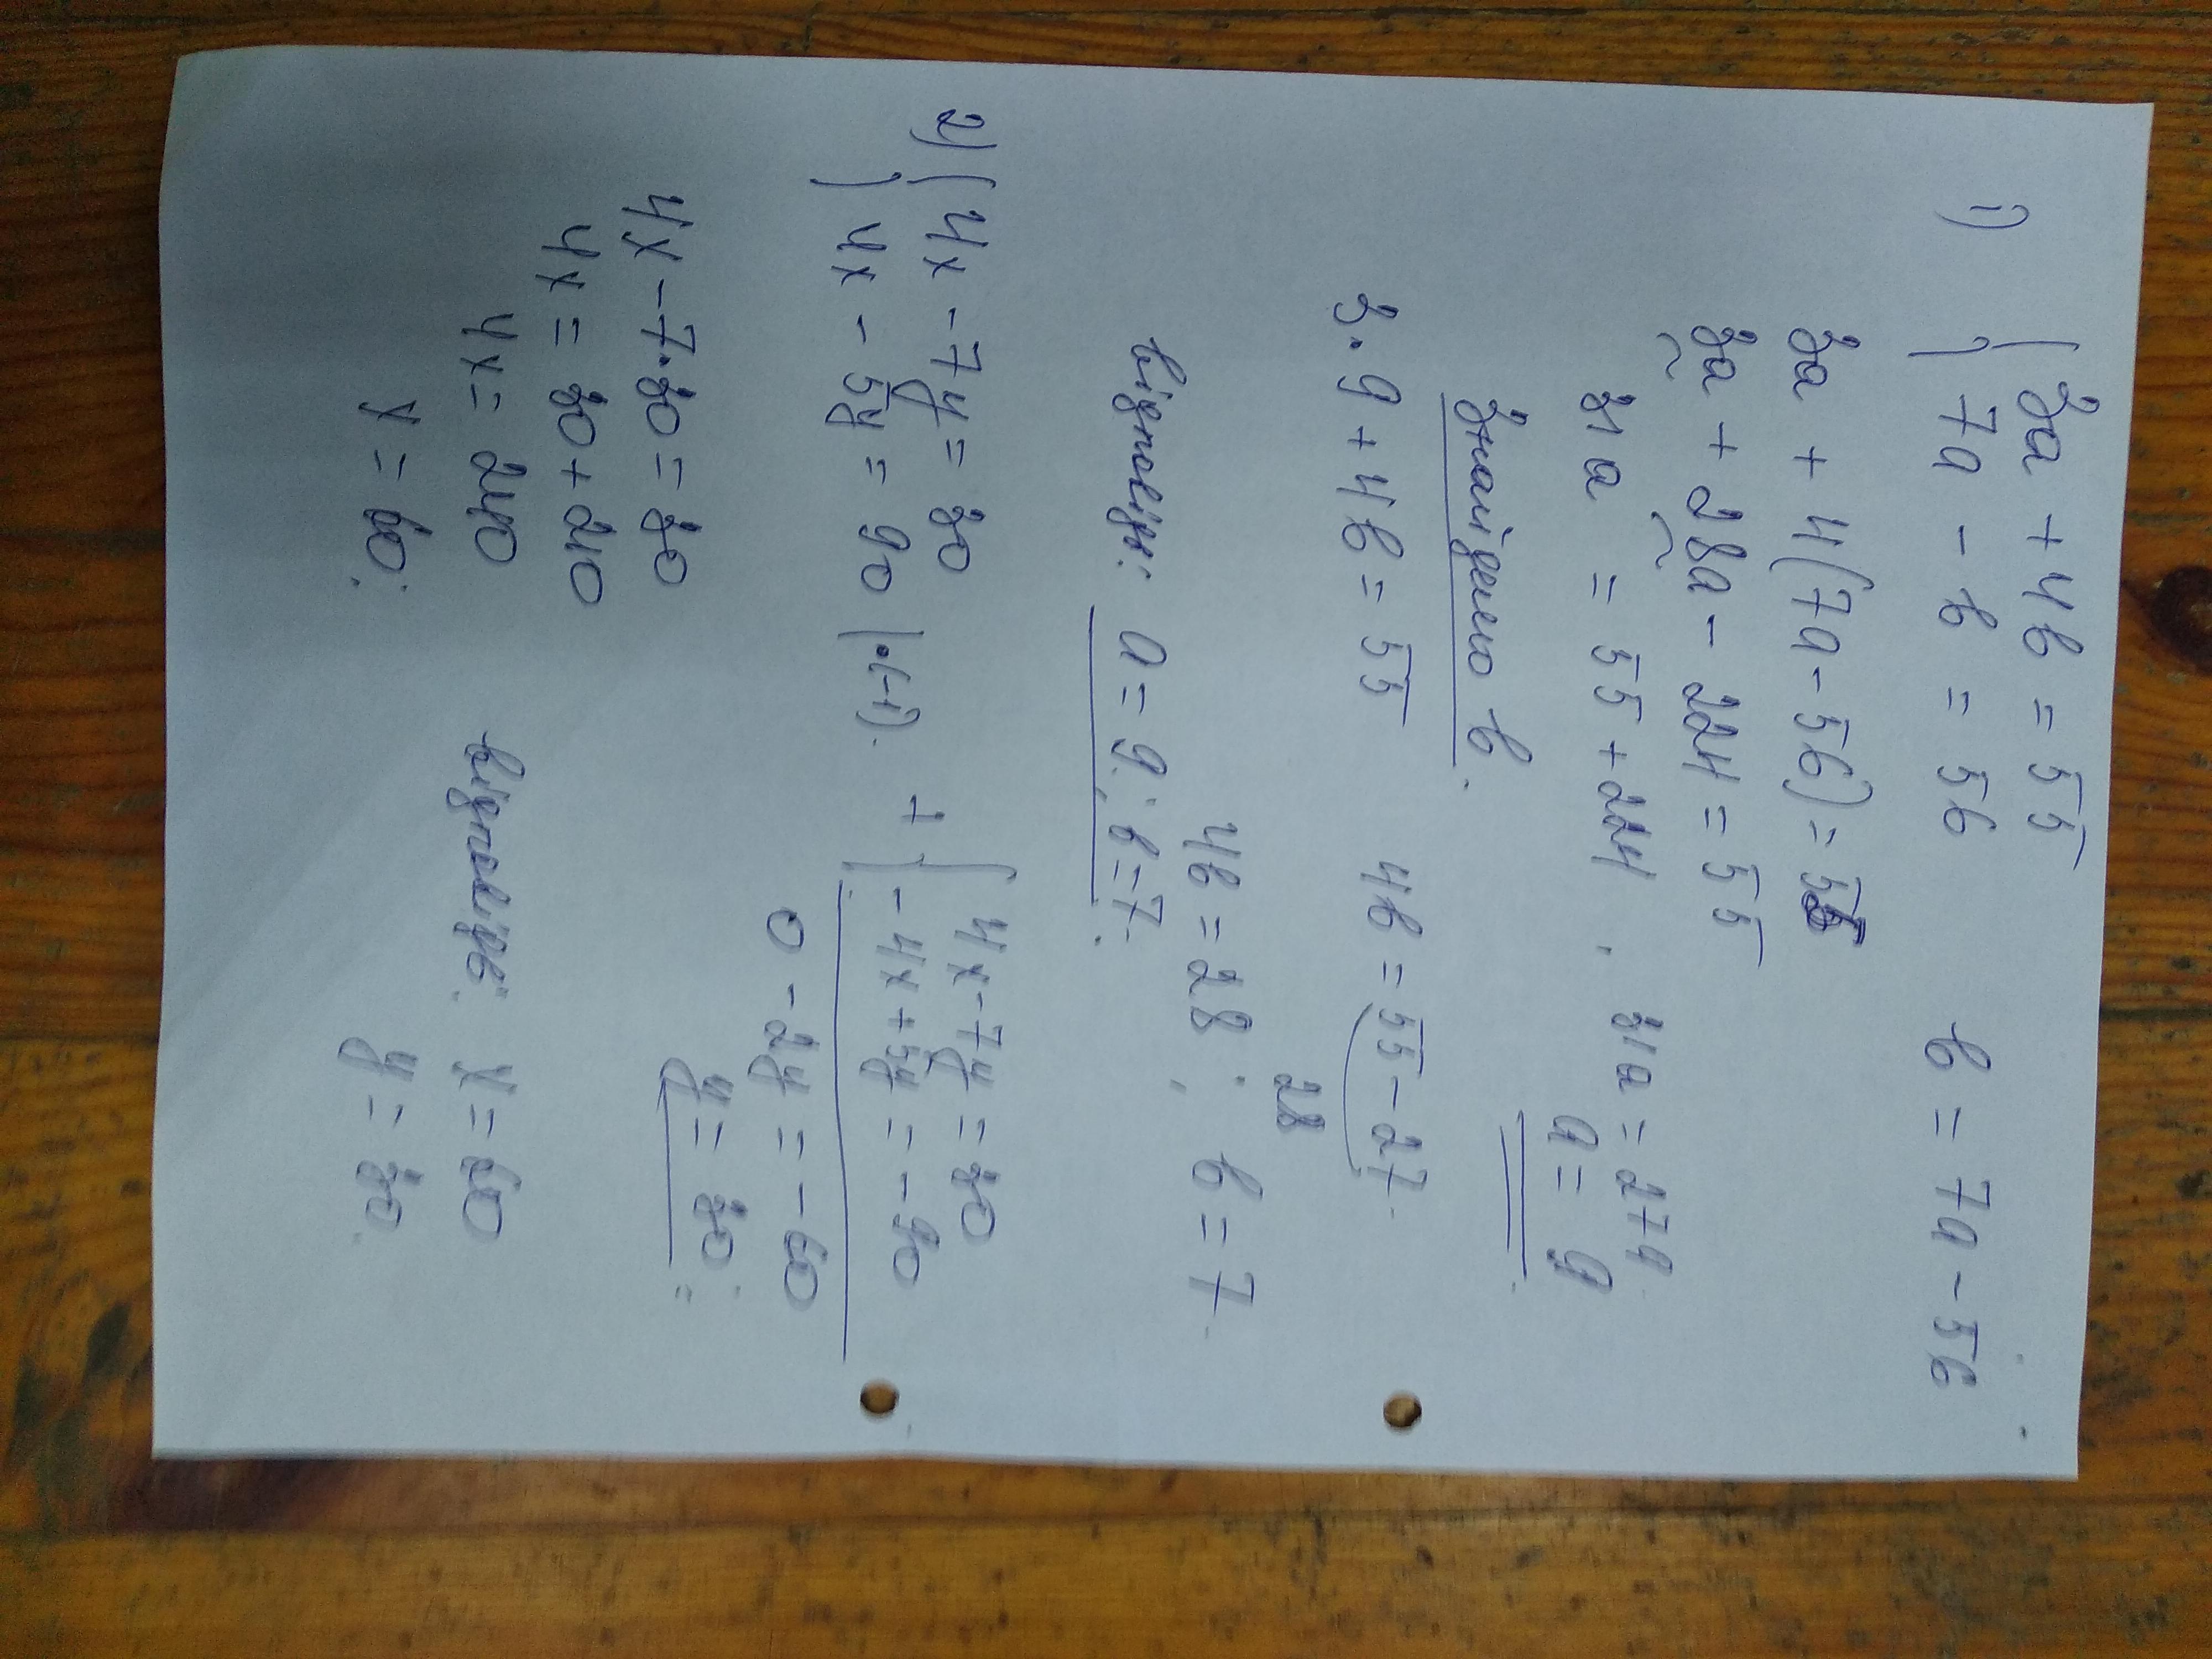 1) { 3a + 4b = 55
7a - b = 56    b = 7a - 56
3a + 4(7a - 56) = 55
3a + 28a - 224 = 55
31a = 55 + 224.    31a = 279
a = 9
Знайдемо b.
3·9 + 4b = 55    4b = 55 - 27.
28
4b = 28;    b = 7.
Відповідь: a = 9; b = 7.
2) { 4x - 7y = 30
4x - 5y = 90 |·(-1).
+ { 4x - 7y = 30
- 4x + 5y = - 90
0 - 2y = - 60
y = 30.
4x - 7·30 = 30
4x = 30 + 210
4x = 240
x = 60.
Відповідь: x = 60
y = 30.